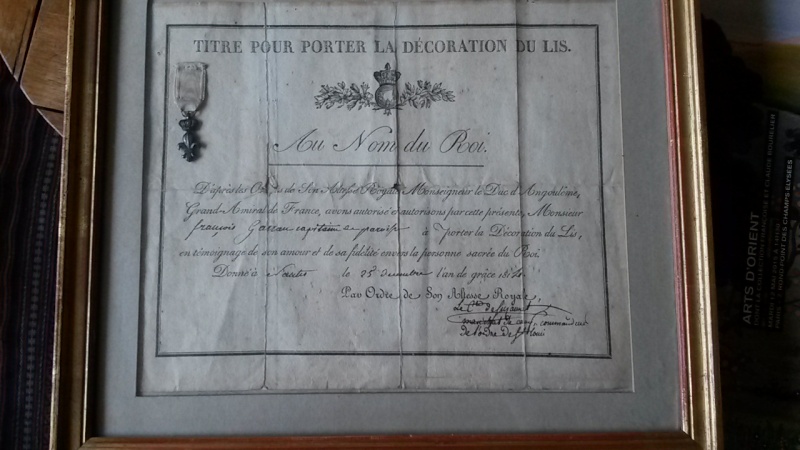 TITRE POUR PORTER LA DÉCORATION DU LIS.
Au Nom du Roi.
D'après les Ordres de Son Altesse Royale Monseigneur le Duc d'Angoulême,
Grand-Amiral de France, avons autorisé et autorisons par cette présente, Monsieur
françois capitaine de à porter la Décoration du Lis,
en témoignage de son amour et de sa fidélité envers la personne sacrée du Roi.
Donné à Nantes le 25 l'an de grâce
Par Ordre de Son Altesse Royale,
Le Cte de
commandeur
de l'ordre de St Louis
ARTS D'ORIENT